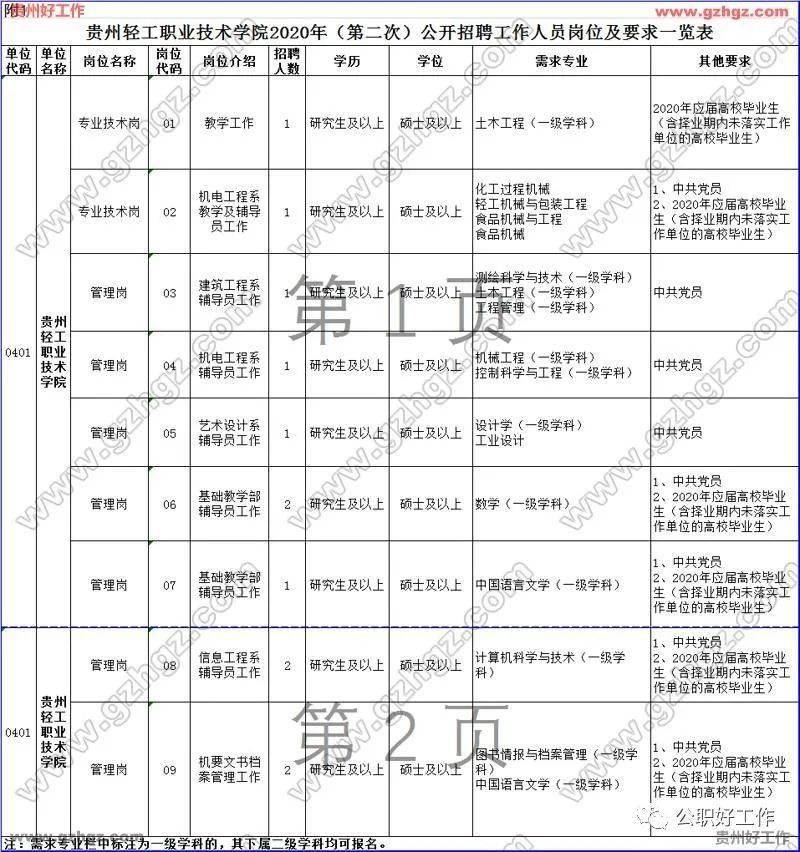 附1
www.gzhgz.com
贵州好工作
贵州轻工职业技术学院2020年（第二次）公开招聘工作人员岗位及要求一览表
单位代码 单位名称 岗位名称 岗位代码 岗位介绍 招聘人数 学历 学位 需求专业 其他要求
0401 贵州轻工职业技术学院
专业技术岗 01 教学工作 1 研究生及以上 硕士及以上 土木工程（一级学科） 2020年应届高校毕业生（含择业期内未落实工作单位的高校毕业生）
专业技术岗 02 机电工程系教学及辅导员工作 1 研究生及以上 硕士及以上 化工过程机械 轻工机械与包装工程 食品机械与工程 食品机械 1、中共党员 2、2020年应届高校毕业生（含择业期内未落实工作单位的高校毕业生）
管理岗 03 建筑工程系辅导员工作 1 研究生及以上 硕士及以上 测绘科学与技术（一级学科） 土木工程（一级学科） 工程管理（一级学科） 中共党员
第1页
管理岗 04 机电工程系辅导员工作 1 研究生及以上 硕士及以上 机械工程（一级学科） 控制科学与工程（一级学科） 中共党员
管理岗 05 艺术设计系辅导员工作 1 研究生及以上 硕士及以上 设计学（一级学科） 工业设计 中共党员
管理岗 06 基础教学部辅导员工作 2 研究生及以上 硕士及以上 数学（一级学科） 1、中共党员 2、2020年应届高校毕业生（含择业期内未落实工作单位的高校毕业生）
管理岗 07 基础教学部辅导员工作 1 研究生及以上 硕士及以上 中国语言文学（一级学科） 1、中共党员 2、2020年应届高校毕业生（含择业期内未落实工作单位的高校毕业生）
0401 贵州轻工职业技术学院
管理岗 08 信息工程系辅导员工作 2 研究生及以上 硕士及以上 计算机科学与技术（一级学科） 1、中共党员 2、2020年应届高校毕业生（含择业期内未落实工作单位的高校毕业生）
第2页
管理岗 09 机要文书档案管理工作 2 研究生及以上 硕士及以上 图书情报与档案管理（一级学科） 中国语言文学（一级学科） 1、中共党员 2、2020年应届高校毕业生（含择业期内未落实工作单位的高校毕业生）
公职好工作
注：需求专业栏中标注为一级学科的，其下属二级学科均可报名。
www.gzhgz.com
贵州好工作